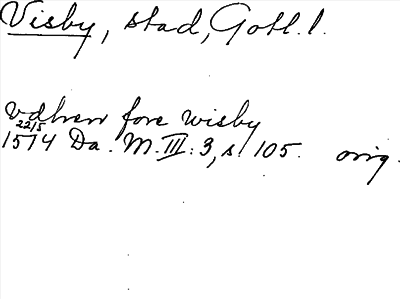 Visby, stad, Gotl. l.
vdhen fore wisby
22/5
1514 Da. M. III: 3, s. 105. orig.